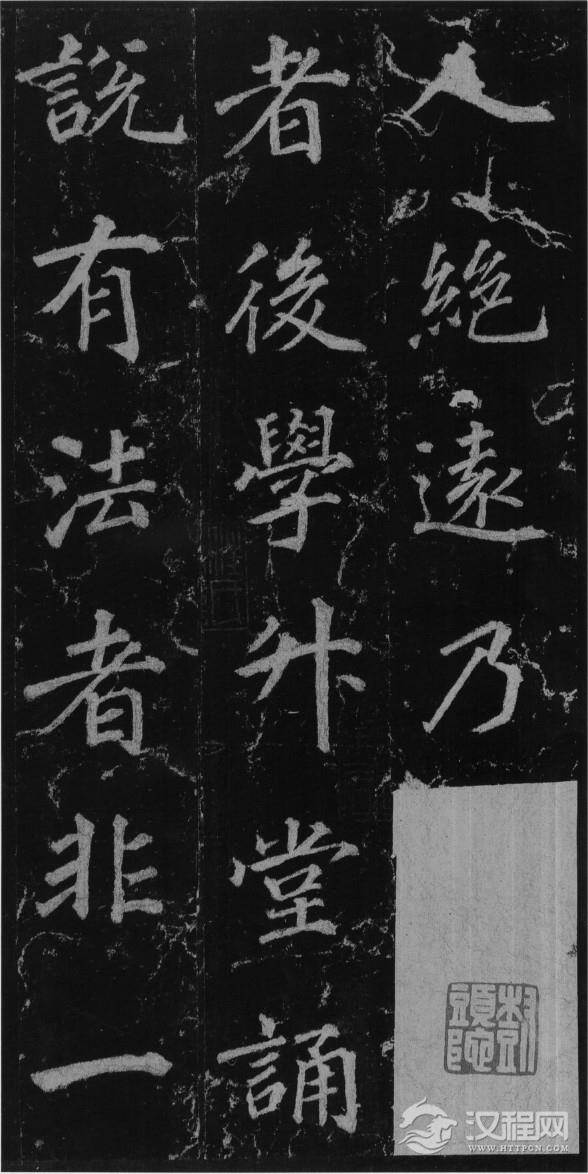 人絕遠乃
者後學升堂誦
說有法者非一
汉程网
WWW.HTTPCN.COM